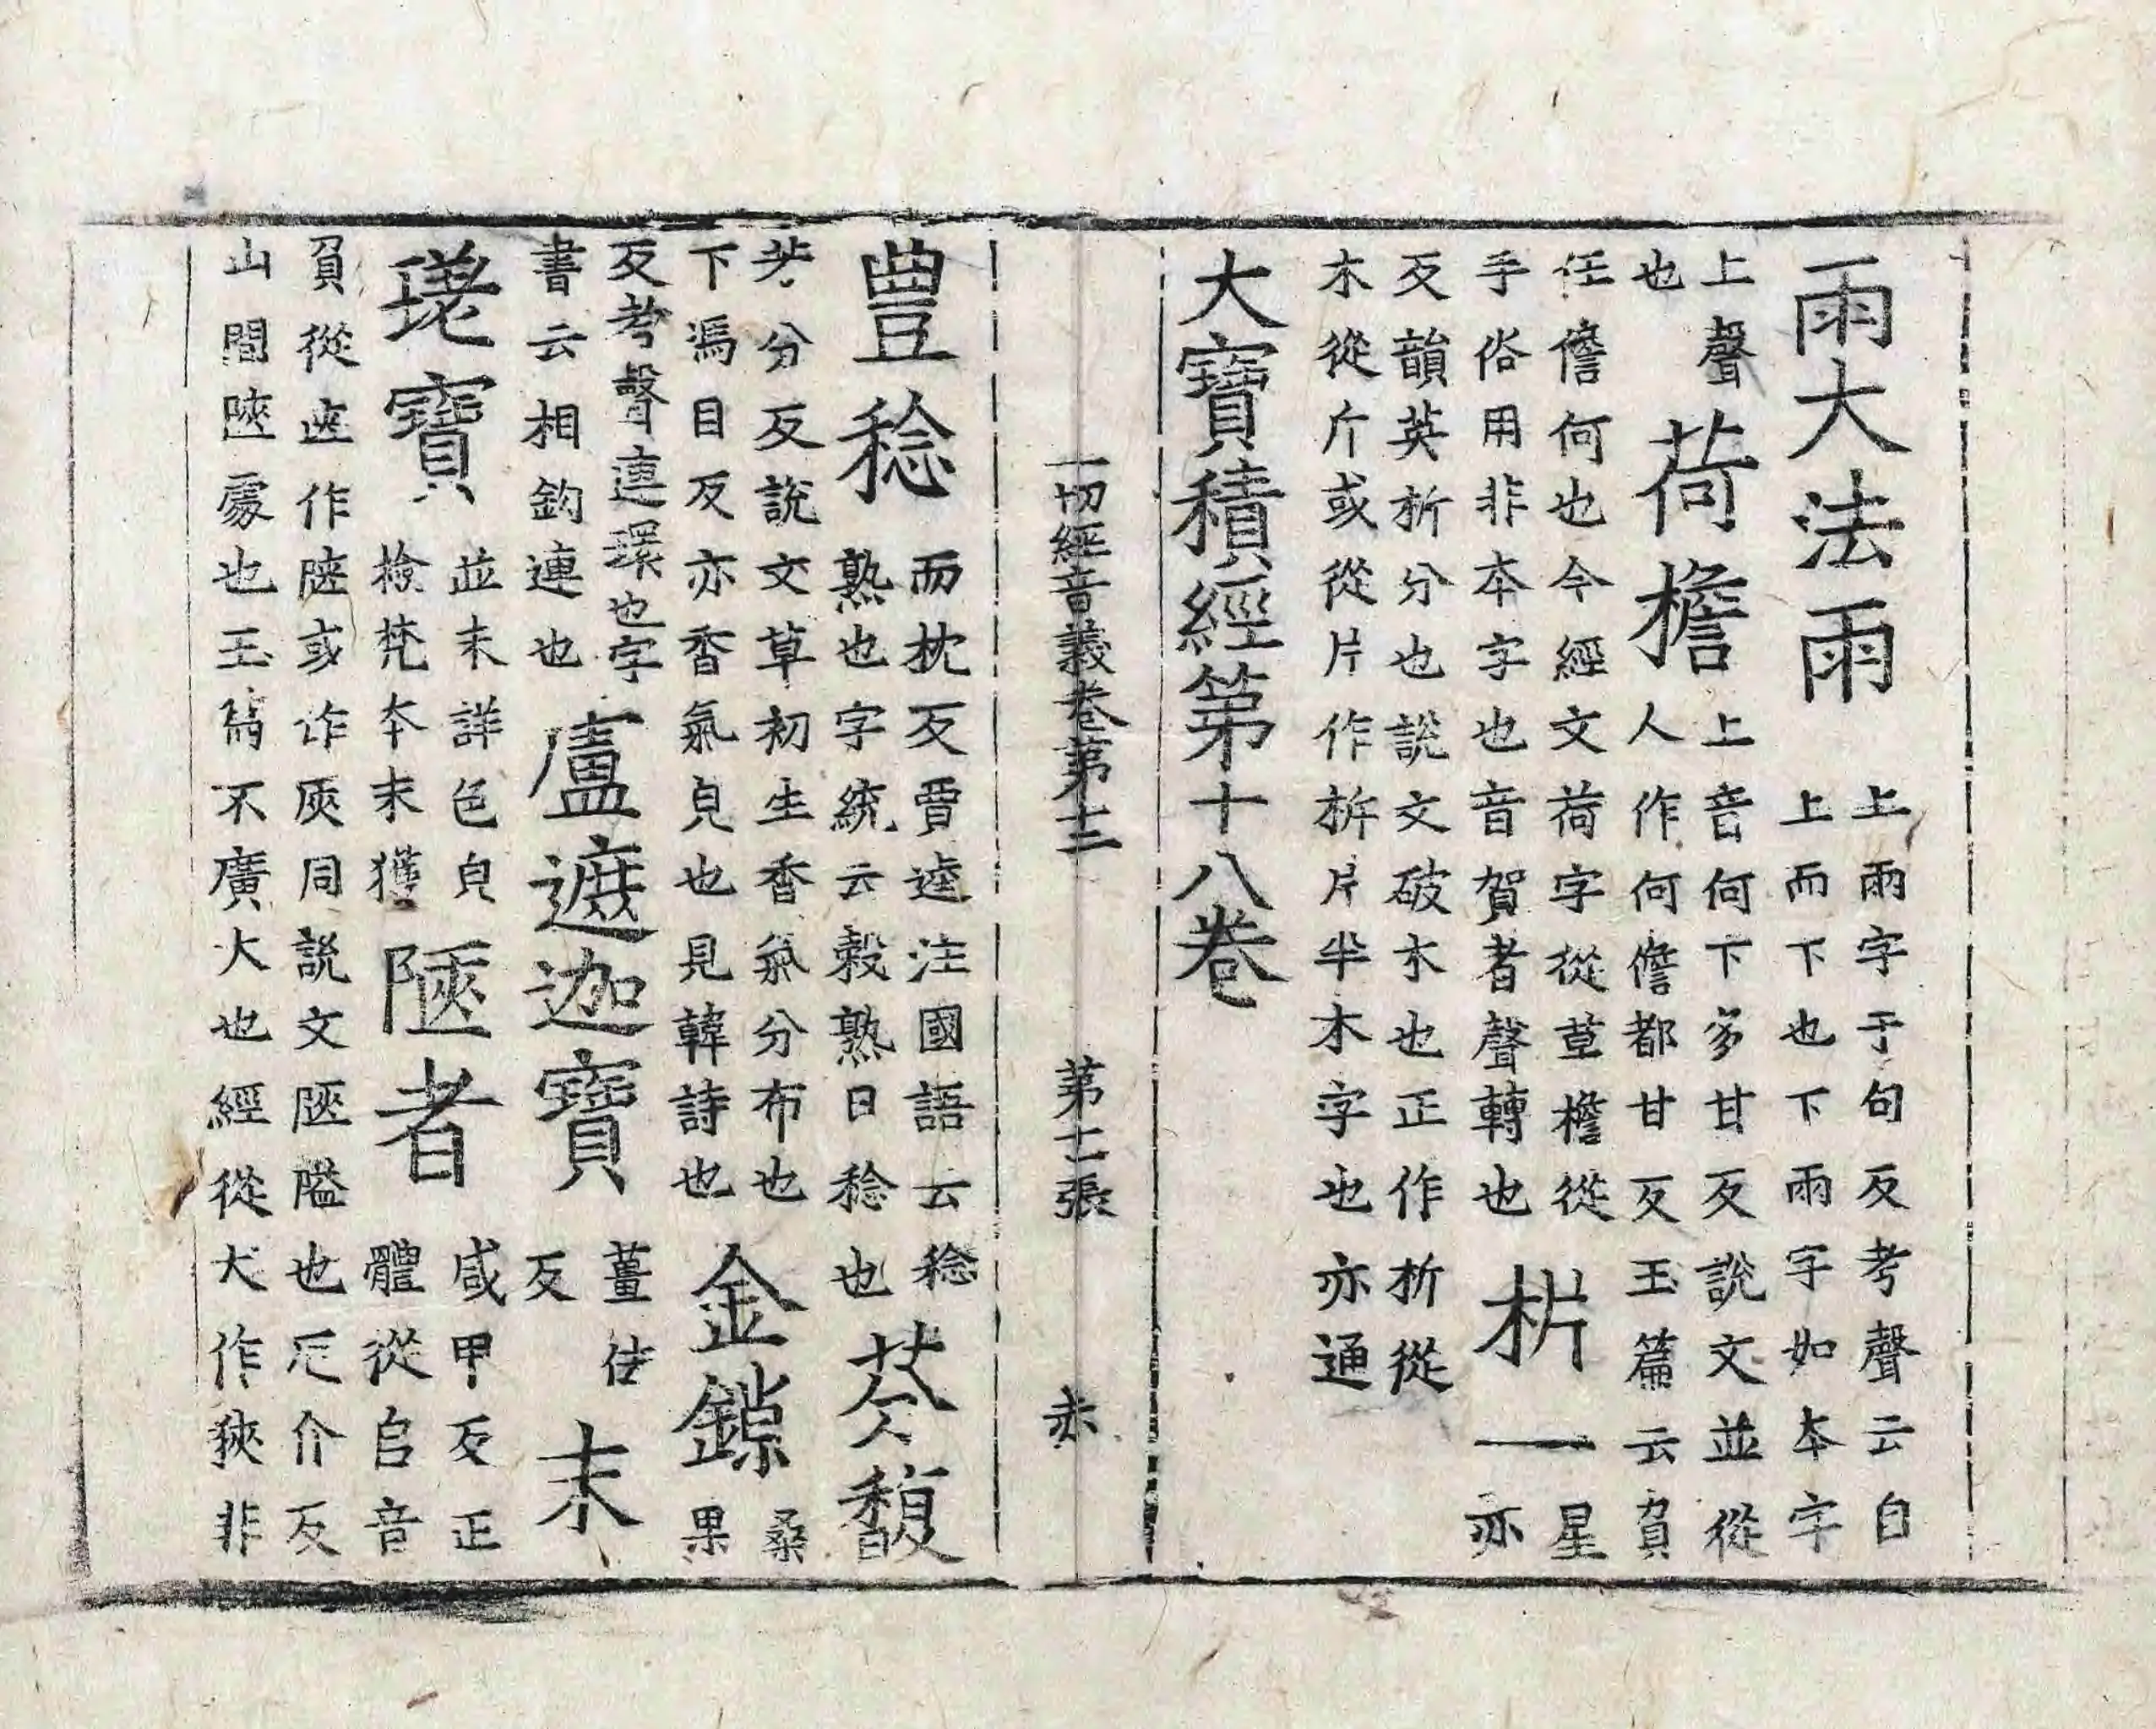 雨大法雨
上雨字于句反考聲云自
上而下也下雨字如本字
上聲
也
荷檐
上音何下多甘反說文並從
人作何儋都甘反玉篇云負
任儋何也今經文荷字從草檐從
手俗用非本字也音賀者聲轉也
㭊一
星
亦
反韻英析分也說文破木也正作析從
木從斤或從片作㭊片半木字也亦通
大寶積經第十八卷
一切經音義卷第十二 第十二張 赤
豊稔
而枕反賈逵注國語云稔
熟也字統云穀熟曰稔也
芬馥
共分反說文草初生香氣分布也
下馮目反亦香氣皃也見韓詩也
金鏁
桑
果
反考聲連環也字
書云相鈎連也
廬遮迦寶
薑佉
反
末
璲寶
並未詳色皃
檢梵本未獲
陿者
咸甲反正
體從𨸏音
負從匧作陿或作㾜同說文陿隘也厄介反
山間陿處也玉篇不廣大也經從犬作狹非